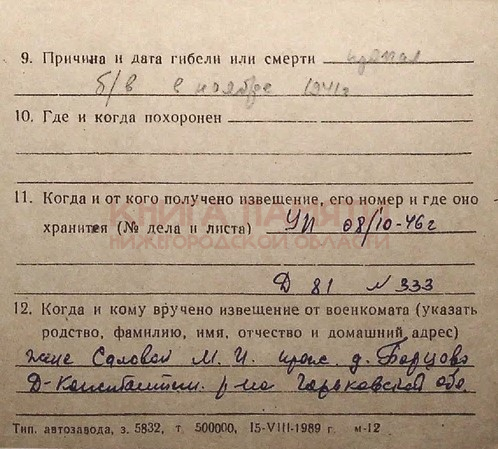 9. Причина и дата гибели или смерти пропал
б/в в ноябре 1941г
10. Где и когда похоронен
11. Когда и от кого получено извещение, его номер и где оно
КНИГА ПАМЯТИ
хранится (№ дела и листа) УП 08/10-46г
НИЖЕГОРОДСКОЙ ОБЛАСТИ
Д 81 N 333
12. Когда и кому вручено извещение от военкомата (указать
родство, фамилию, имя, отчество и домашний адрес)
жене Саловой М. И. прож. д. Борцово
Д-Константин. р-на Горьковской обл.
Тип. автозавода, з. 5832, т. 500000, 15-VIII-1989 г. м-12